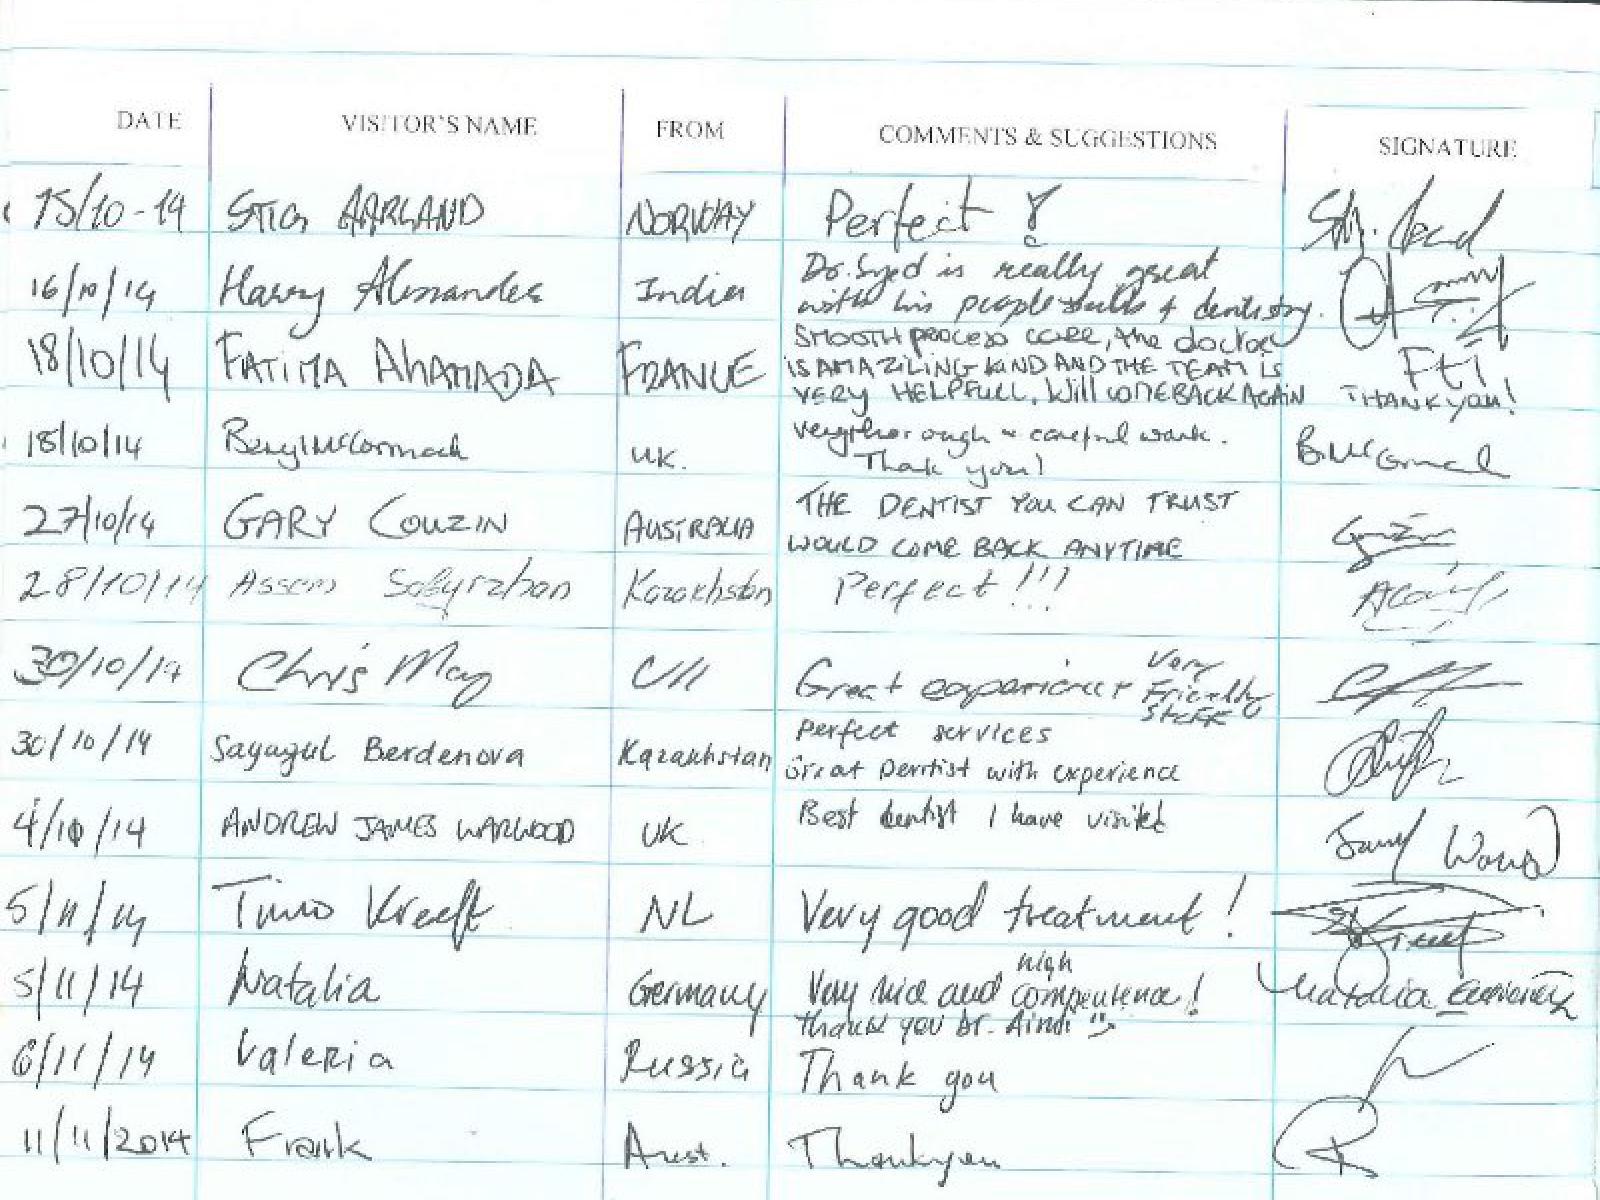 DATE VISITOR'S NAME FROM COMMENTS & SUGGESTIONS SIGNATURE
15/10-14 STIG AARLAND NORWAY Perfect !
16/10/14 Harry Alexander India Dr. Syed is really great
with his people skills & dentistry.
18/10/14 FATIMA AHAMADA FRANCE SMOOTH process care, the doctor
IS AMAZILING KIND AND THE TEAM IS
VERY HELPFULL. Will COME BACK AGAIN THANK you!
18/10/14 Beryl McCormack UK. very thorough & careful work.
Thank you!
27/10/14 GARY COUZIN AUSTRALIA THE DENTIST YOU CAN TRUST
WOULD COME BACK ANYTIME
28/10/14 Assem Kazakhstan Perfect!!!
30/10/14 Chris May Great experience Very
Friendly
Staff
30/10/14 Sayagul Berdenova Kazakhstan perfect services
Great Dentist with experience
4/10/14 ANDREW JAMES WARWOOD UK Best dentist I have visited
5/11/14 Timo Kreeft NL Very good treatment !
5/11/14 Natalia Germany Very nice and high compentence! Natalia
thank you Dr.
6/11/14 Valeria Russia Thank you
11/11/2014 Frank Aust. Thankyou